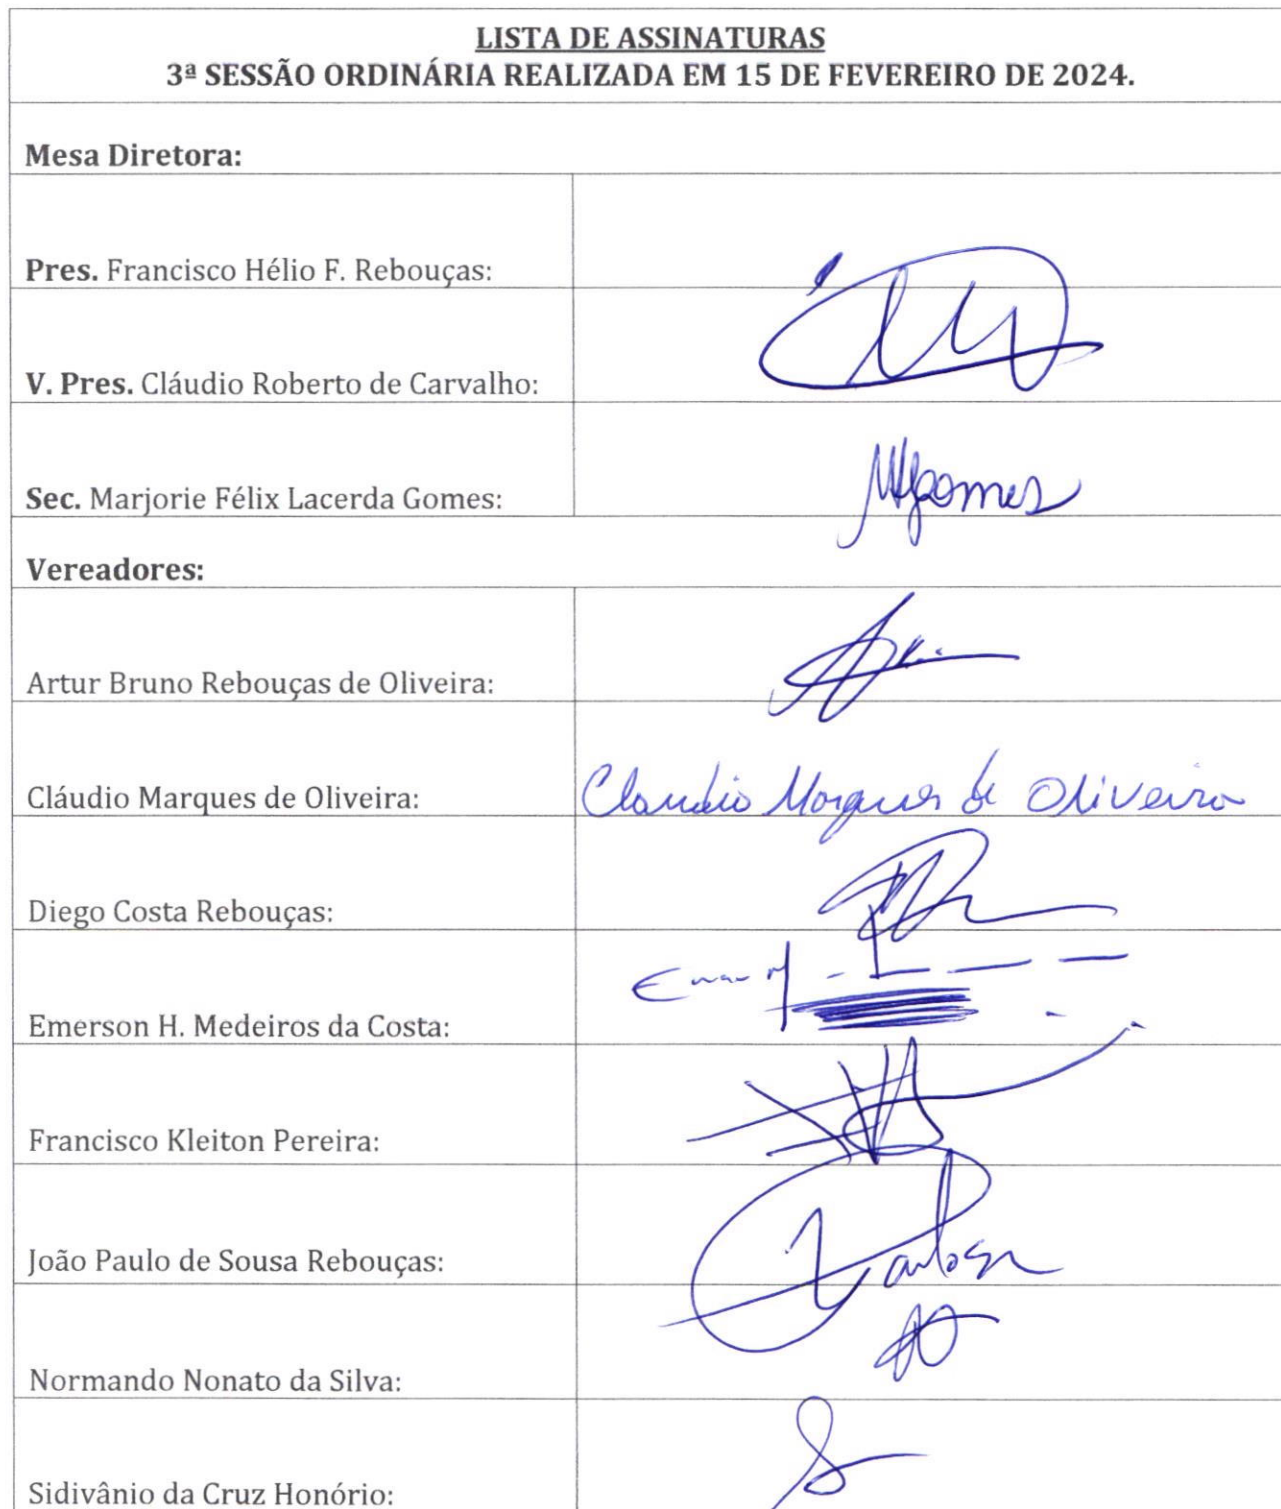 LISTA DE ASSINATURAS
3ª SESSÃO ORDINÁRIA REALIZADA EM 15 DE FEVEREIRO DE 2024.
Mesa Diretora:
Pres. Francisco Hélio F. Rebouças:
V. Pres. Cláudio Roberto de Carvalho:
Sec. Marjorie Félix Lacerda Gomes: Mfgomes
Vereadores:
Artur Bruno Rebouças de Oliveira:
Cláudio Marques de Oliveira: Claudio Marques de Oliveira
Diego Costa Rebouças:
Emerson H. Medeiros da Costa:
Francisco Kleiton Pereira:
João Paulo de Sousa Rebouças:
Normando Nonato da Silva:
Sidivânio da Cruz Honório: